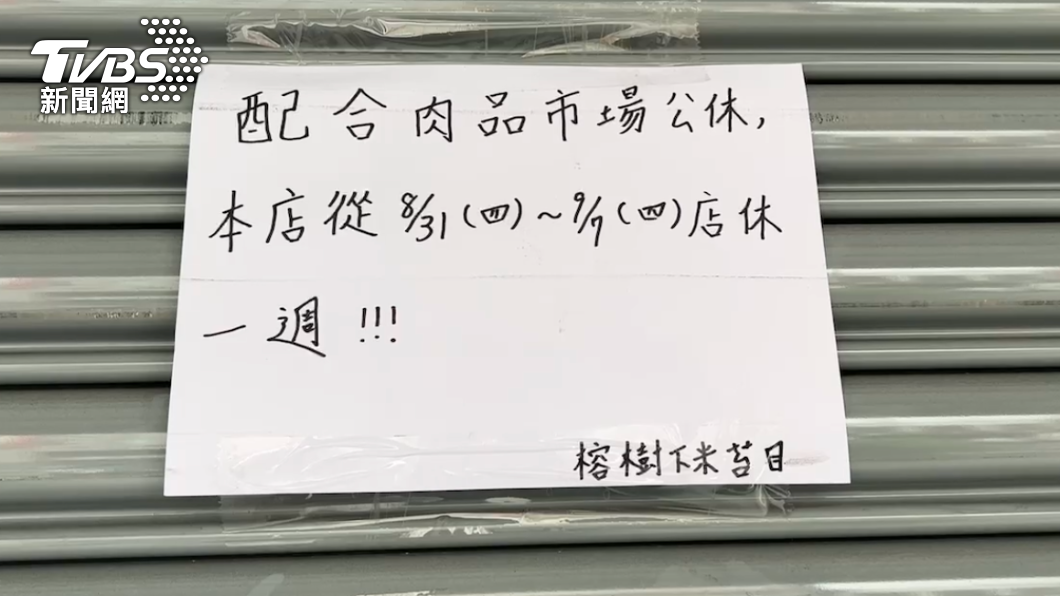 TVBS
新聞網
配合肉品市場公休,
本店從 8/31 (四) ~ 9/7 (四) 店休
一週 !!!
榕樹下米苔目